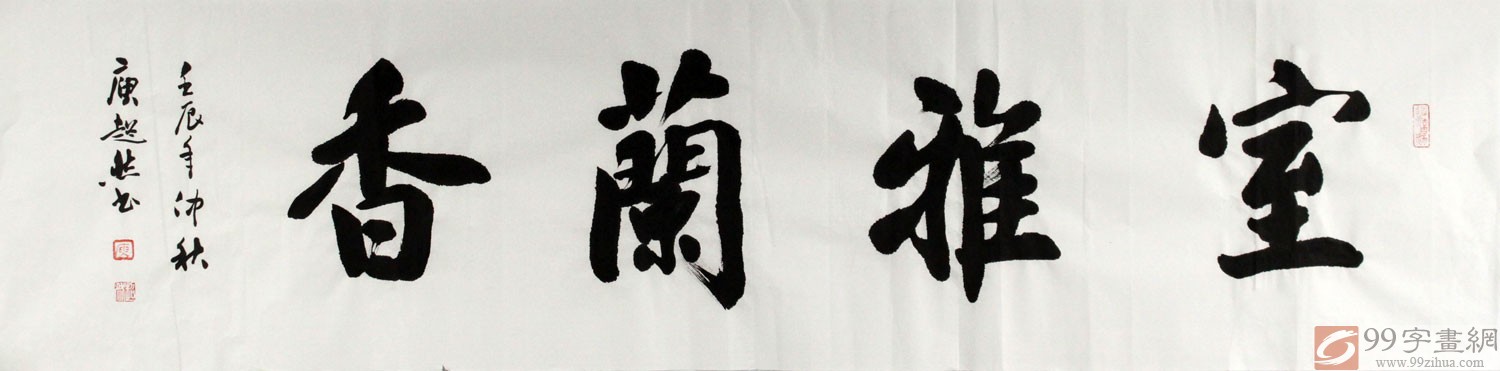 室雅蘭香
壬辰年仲秋
庾超然书
99字畫網
www.99zihua.com